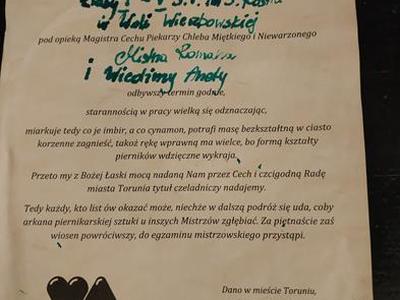 w Woli Wierzbowskiej
pod opieką Magistra Cechu Piekarzy Chleba Miętkiego i Niewarzonego
Mistrza Romana
i Wiedźmy Anety
odbywszy termin godnie,
starannością w pracy wielką się odznaczając,
miarkuje tedy co je imbir, a co cynamon, potrafi masę bezkształtną w ciasto
korzenne zagnieść, takoż rękę wprawną ma wielce, bo formą kształty
pierników wdzięczne wykraja.
Przeto my z Bożej Łaski mocą nadaną Nam przez Cech i czcigodną Radę
miasta Torunia tytuł czeladniczy nadajemy.
Tedy każdy, kto list ów okazać może, niechże w dalszą podróż się uda, coby
arkana piernikarskiej sztuki u inszych Mistrzów zgłębiać. Za piętnaście zaś
wiosen powróciwszy, do egzaminu mistrzowskiego przystąpi.
Dano w mieście Toruniu,